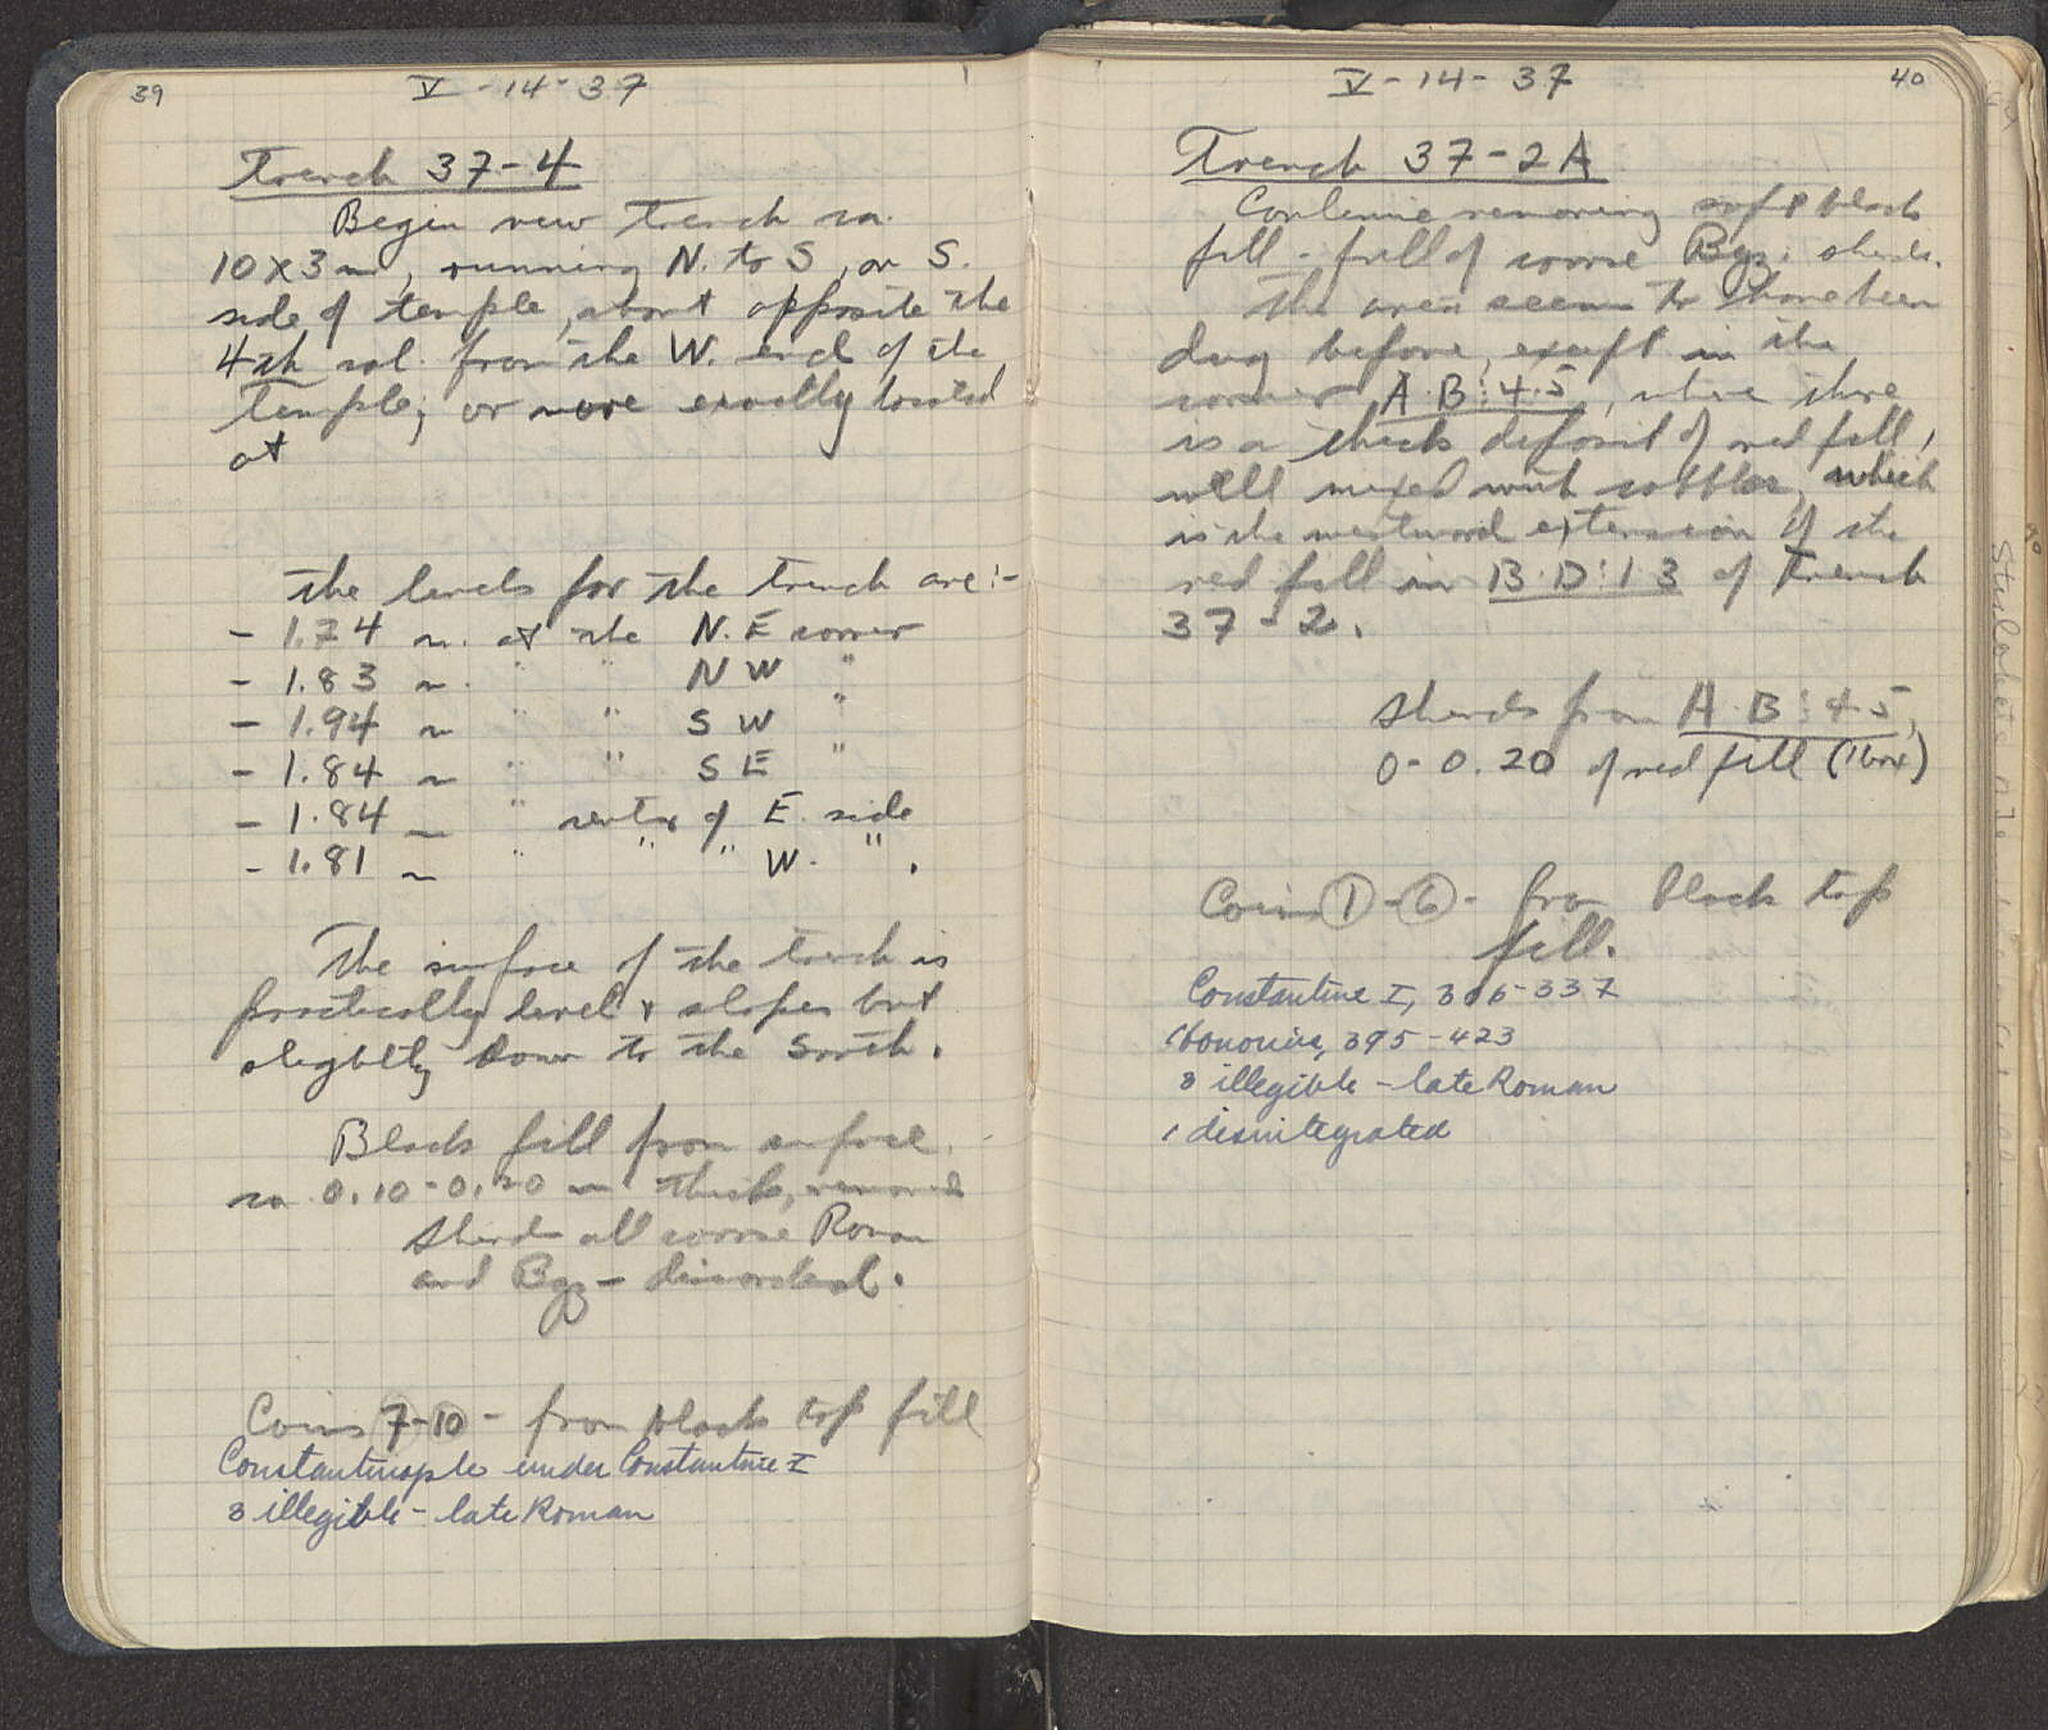 39
V - 14 - 37
Trench 37-4
Begin new trench ca.
10 x 3 m, running N. to S, on S.
side of temple, about opposite the
4th col. from the W. end of the
temple; or more exactly located
at
The levels for the trench are:-
- 1.74 m. at the N.E corner
- 1.83 m. " " NW "
- 1.94 m " " SW "
- 1.84 m " " SE "
- 1.84 m " center of E. side
- 1.81 m " " " W. " .
The surface of the trench is
practically level & slopes but
slightly down to the south.
Black fill from surface
ca 0.10-0.20 m thick, removed
Sherds all coarse Roman
and Byz - discarded.
Coins 7-10 - from black top fill
Constantinople under Constantine I
3 illegible - late Roman
V - 14 - 37
40
Trench 37-2A
Continue removing soft black
fill - full of coarse Byz. sherds.
The area seems to have been
dug before, except in the
corner A·B:4·5, where there
is a thick deposit of red fill,
well mixed with cobbles, which
is the westward extension of the
red fill in B·D:1·3 of Trench
37-2.
Sherds from A·B:4·5,
0-0.20 of red fill (1 box)
Coins 1-6 - from black top
fill.
Constantine I, 306-337
Honorius, 395-423
3 illegible - late Roman
1 disintegrated